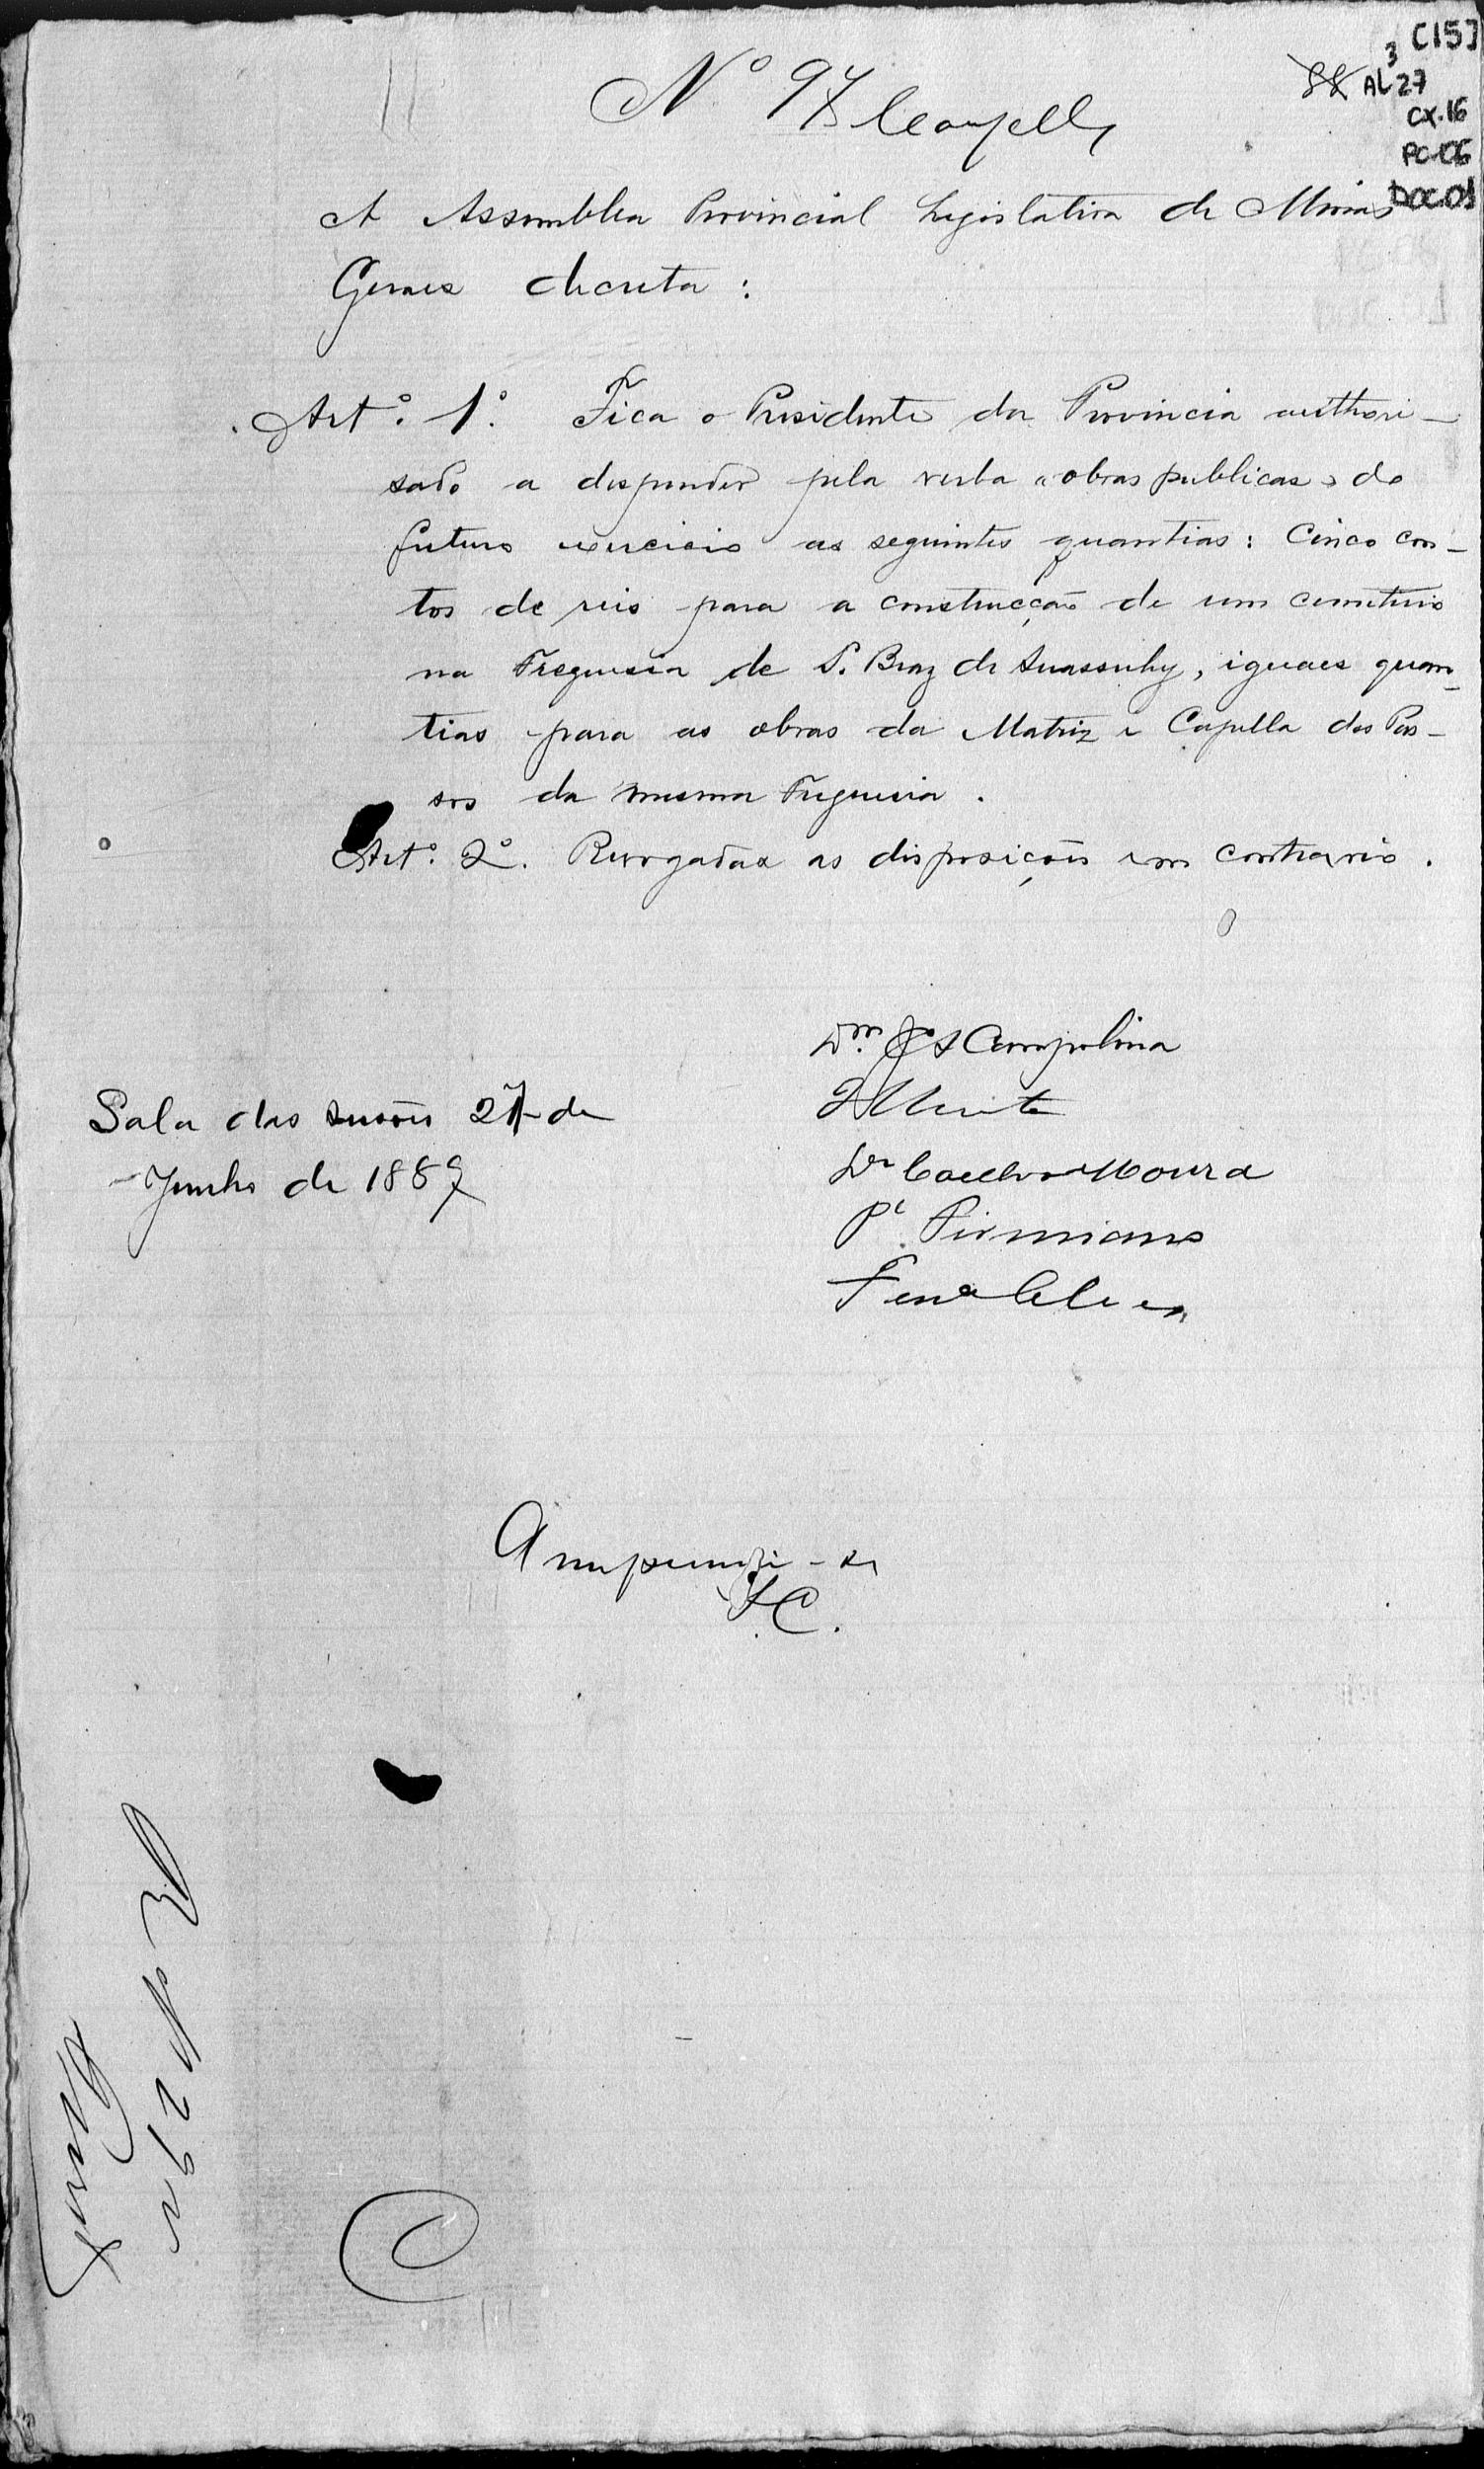 C15]
3
88 AL 27
CX.16
PC-06
DOC.01
Nº 97
A Assemblea Provincial Legislativa de Minas
Geraes decreta :
Artº. 1º. Fica o Presidente da Provincia authori-
sado a despender pela verba "obras publicas" do
futuro exercicio as seguintes quantias: Cinco con-
tos de reis para a construcção de um cemiterio
na Freguesia de S. Braz de Suassuhy, iguaes quan-
tias para as obras da Matriz e Capella dos Pas-
sos da mesma Freguesia .
Artº. 2º. Revogadas as disposições em contrario .
Campolina
Sala das sessões 27 de
Junho de 1889
Dr Coelho Moura
Pe. Firmiano